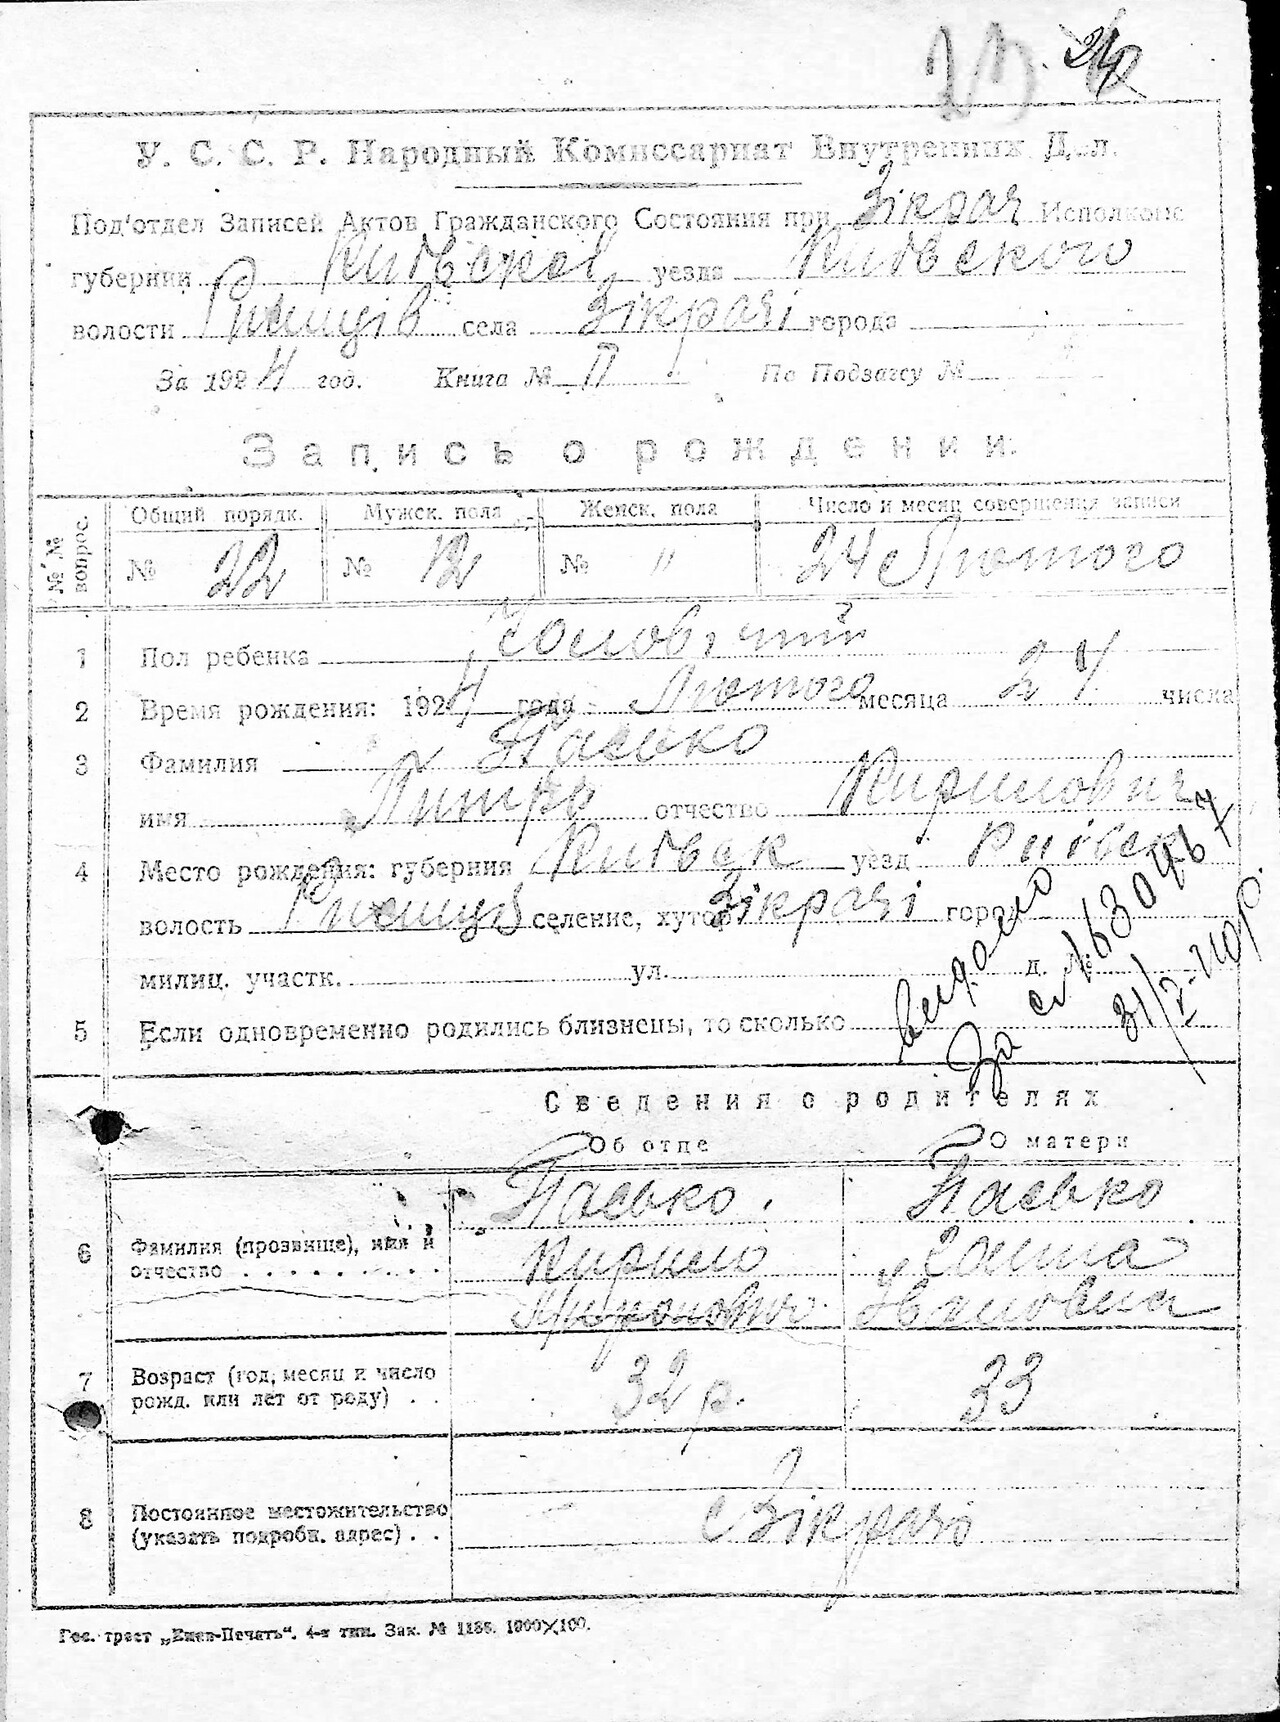 24
У. С. С. Р. Народный Комиссариат Внутренних Дел.
Под'отдел Записей Актов Гражданского Состояния при Зікрач Исполкоме
губернии Київской уезда Київского
волости Ржищів села Зікрачі города
За 1924 год. Книга № II По Подзагсу №
Запись о рождении.
№№ вопрос. Общий порядк. Мужск. пола Женск. пола Число и месяц совершения записи
№ 22 № 12 № " 24 Лютого
1 Пол ребенка Чоловічий
2 Время рождения: 1924 года Лютого месяца 24 числа
3 Фамилия Пасько
имя Питро отчество Кирилович
4 Место рождения: губерния Київск уезд Київск
волость Ржищів селение, хутор Зікрачі город
милиц. участк. ул. д. №
5 Если одновременно родились близнецы, то сколько
видано
За
Сведения о родителях
Об отце О матери
6 Фамилия (прозвище), имя и отчество Пасько Кирило Миронович Пасько Ганна Івановна
7 Возраст (год, месяц и число рожд. или лет от роду) 32 р. 33
8 Постоянное местожительство (указать подробн. адрес) с Зікрачі
Гос. трест „Киев-Печать“. 4-я тип. Зак. № 1186. 1000×100.